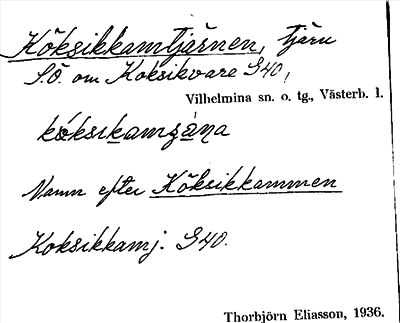 Köksikkamtjärnen, tjärn
S.Ö. om Koksikvare G40,
Vilhelmina sn. o. tg., Västerb. l.
Namn efter Köksikkammen
Koksikkamj. G40.
Thorbjörn Eliasson, 1936.